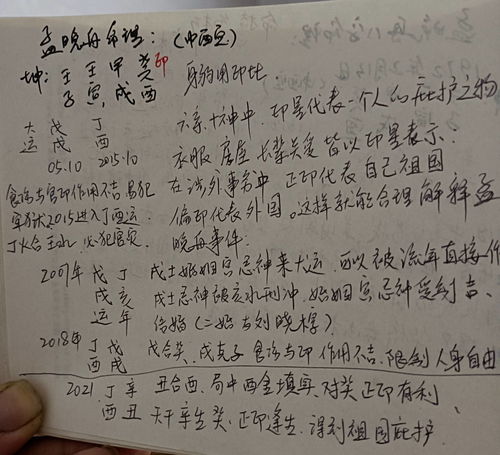 孟晚舟命理：（中西室）
坤：壬 壬 甲 癸印 身弱用印比
子 寅 戌 酉
六亲十神中，印星代表一个人的庇护之物
大 戊 丁
运 戌 酉
05.10 2015.10
衣服 居屋 长辈关爱 皆以印星表示？
在涉外事务中 正印代表自己祖国
偏印代表外国。这样就能合理解释孟
晚舟事件：
食伤与官印作用不吉，易犯
官狱 2015进入丁酉运
丁火合壬水，必犯官灾
2007年 戊 丁 戌土婚姻宫忌神来大运，可以被流年直接作
戌 亥 戌土忌神被亥水刑冲，婚姻宫忌神受到 吉、
运 年 结婚（二婚与刘晓棕）
2018年 丁 戊 戊合癸，戌克子 食伤与印 作用不吉、限制人身自由
酉 戌
2021 丁 辛 丑合酉，局中酉金填实，对癸正印有利
酉 丑 天干辛生癸、正印逢生、得到祖国庇护